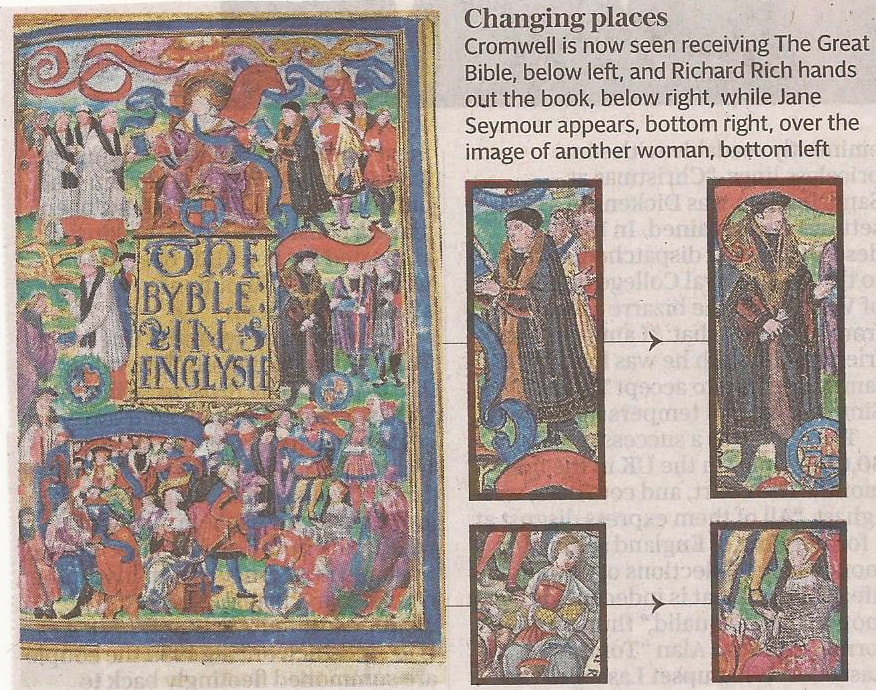 Changing places
Cromwell is now seen receiving The Great
Bible, below left, and Richard Rich hands
out the book, below right, while Jane
Seymour appears, bottom right, over the
image of another woman, bottom left
THE
BYBLE:
IN
ENGLYSH